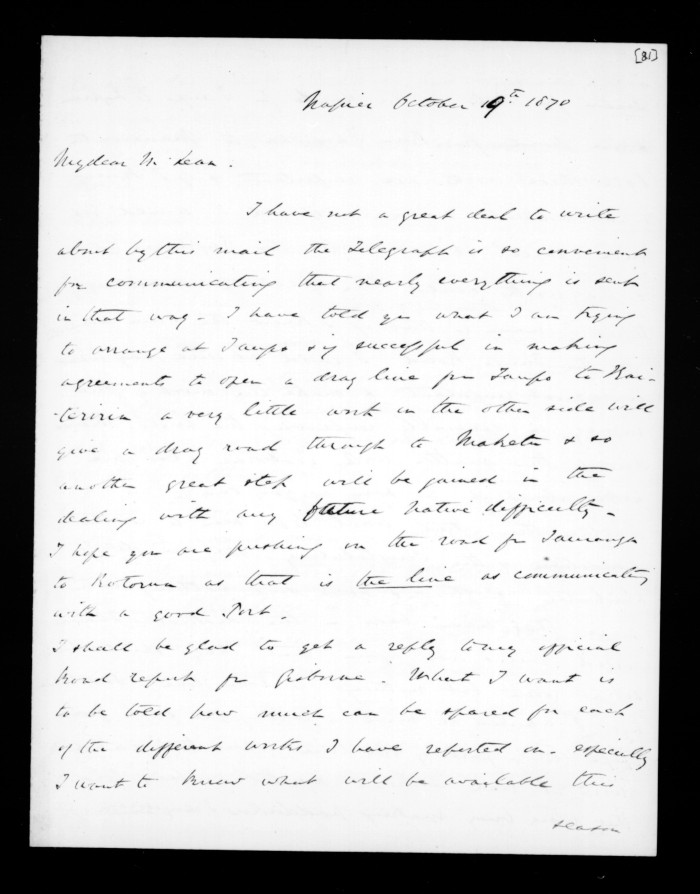 [81]
Napier October 19th 1870
My dear McLean.
I have not a great deal to write
about by this mail the Telegraph is so convenient
for communicating that nearly everything is sent
in that way - I have told you what I am trying
to arrange at Taupo & if successful in making
agreements to open a dray line from Taupo to Kai-
-teriria a very little work on the other side will
give a dray road through to Maketu & so
another great step will be gained in the
dealing with any future Native difficulty -
I hope you are pushing on the road from Tauranga
to Rotorua as that is the line as communicating
with a good Port.
I shall be glad to get a reply to my official
Road report from Gisborne. What I want is
to be told how much can be spared for each
of the different works I have reported on - especially
I want to know what will be available this
season